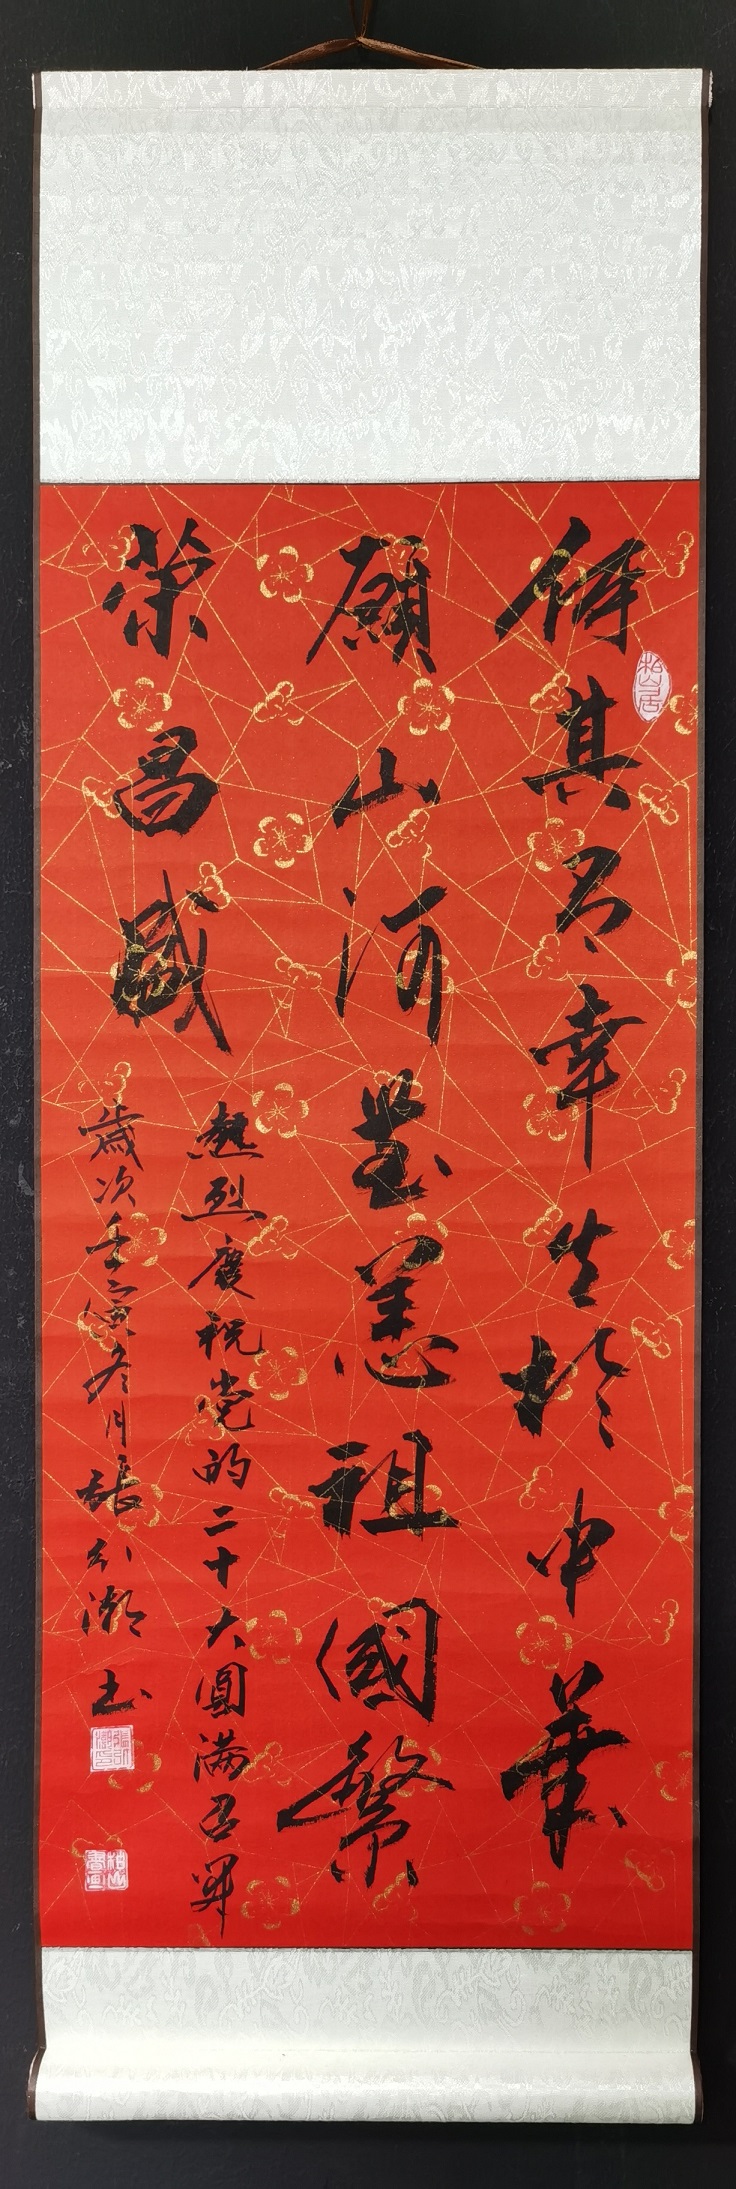 何其有幸生於中華
願山河無恙祖國繁
榮昌盛
熱烈慶祝党的二十大圓满召開
歲次壬寅冬月張引潮书